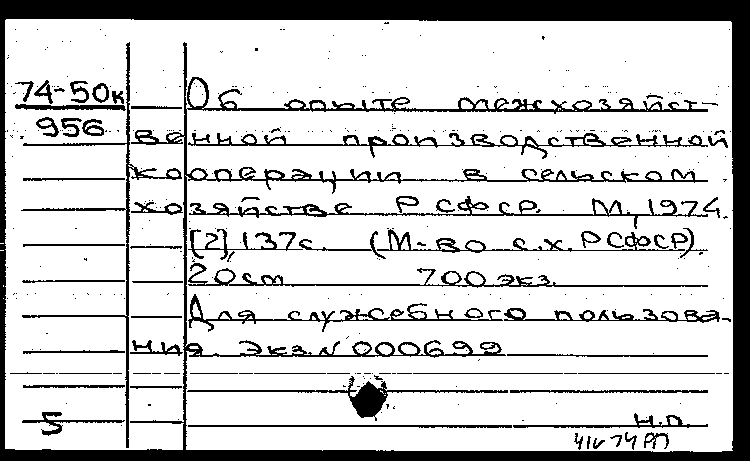 74-50к Об опыте межхозяйст-
956 венной производственной
кооперации в сельском
хозяйстве РСФСР. М., 1974.
[2], 137с. (М-во с.х. РСФСР).
20см 700 экз.
Для служебного пользова-
ния. Экз. N 000699
5 н.п.